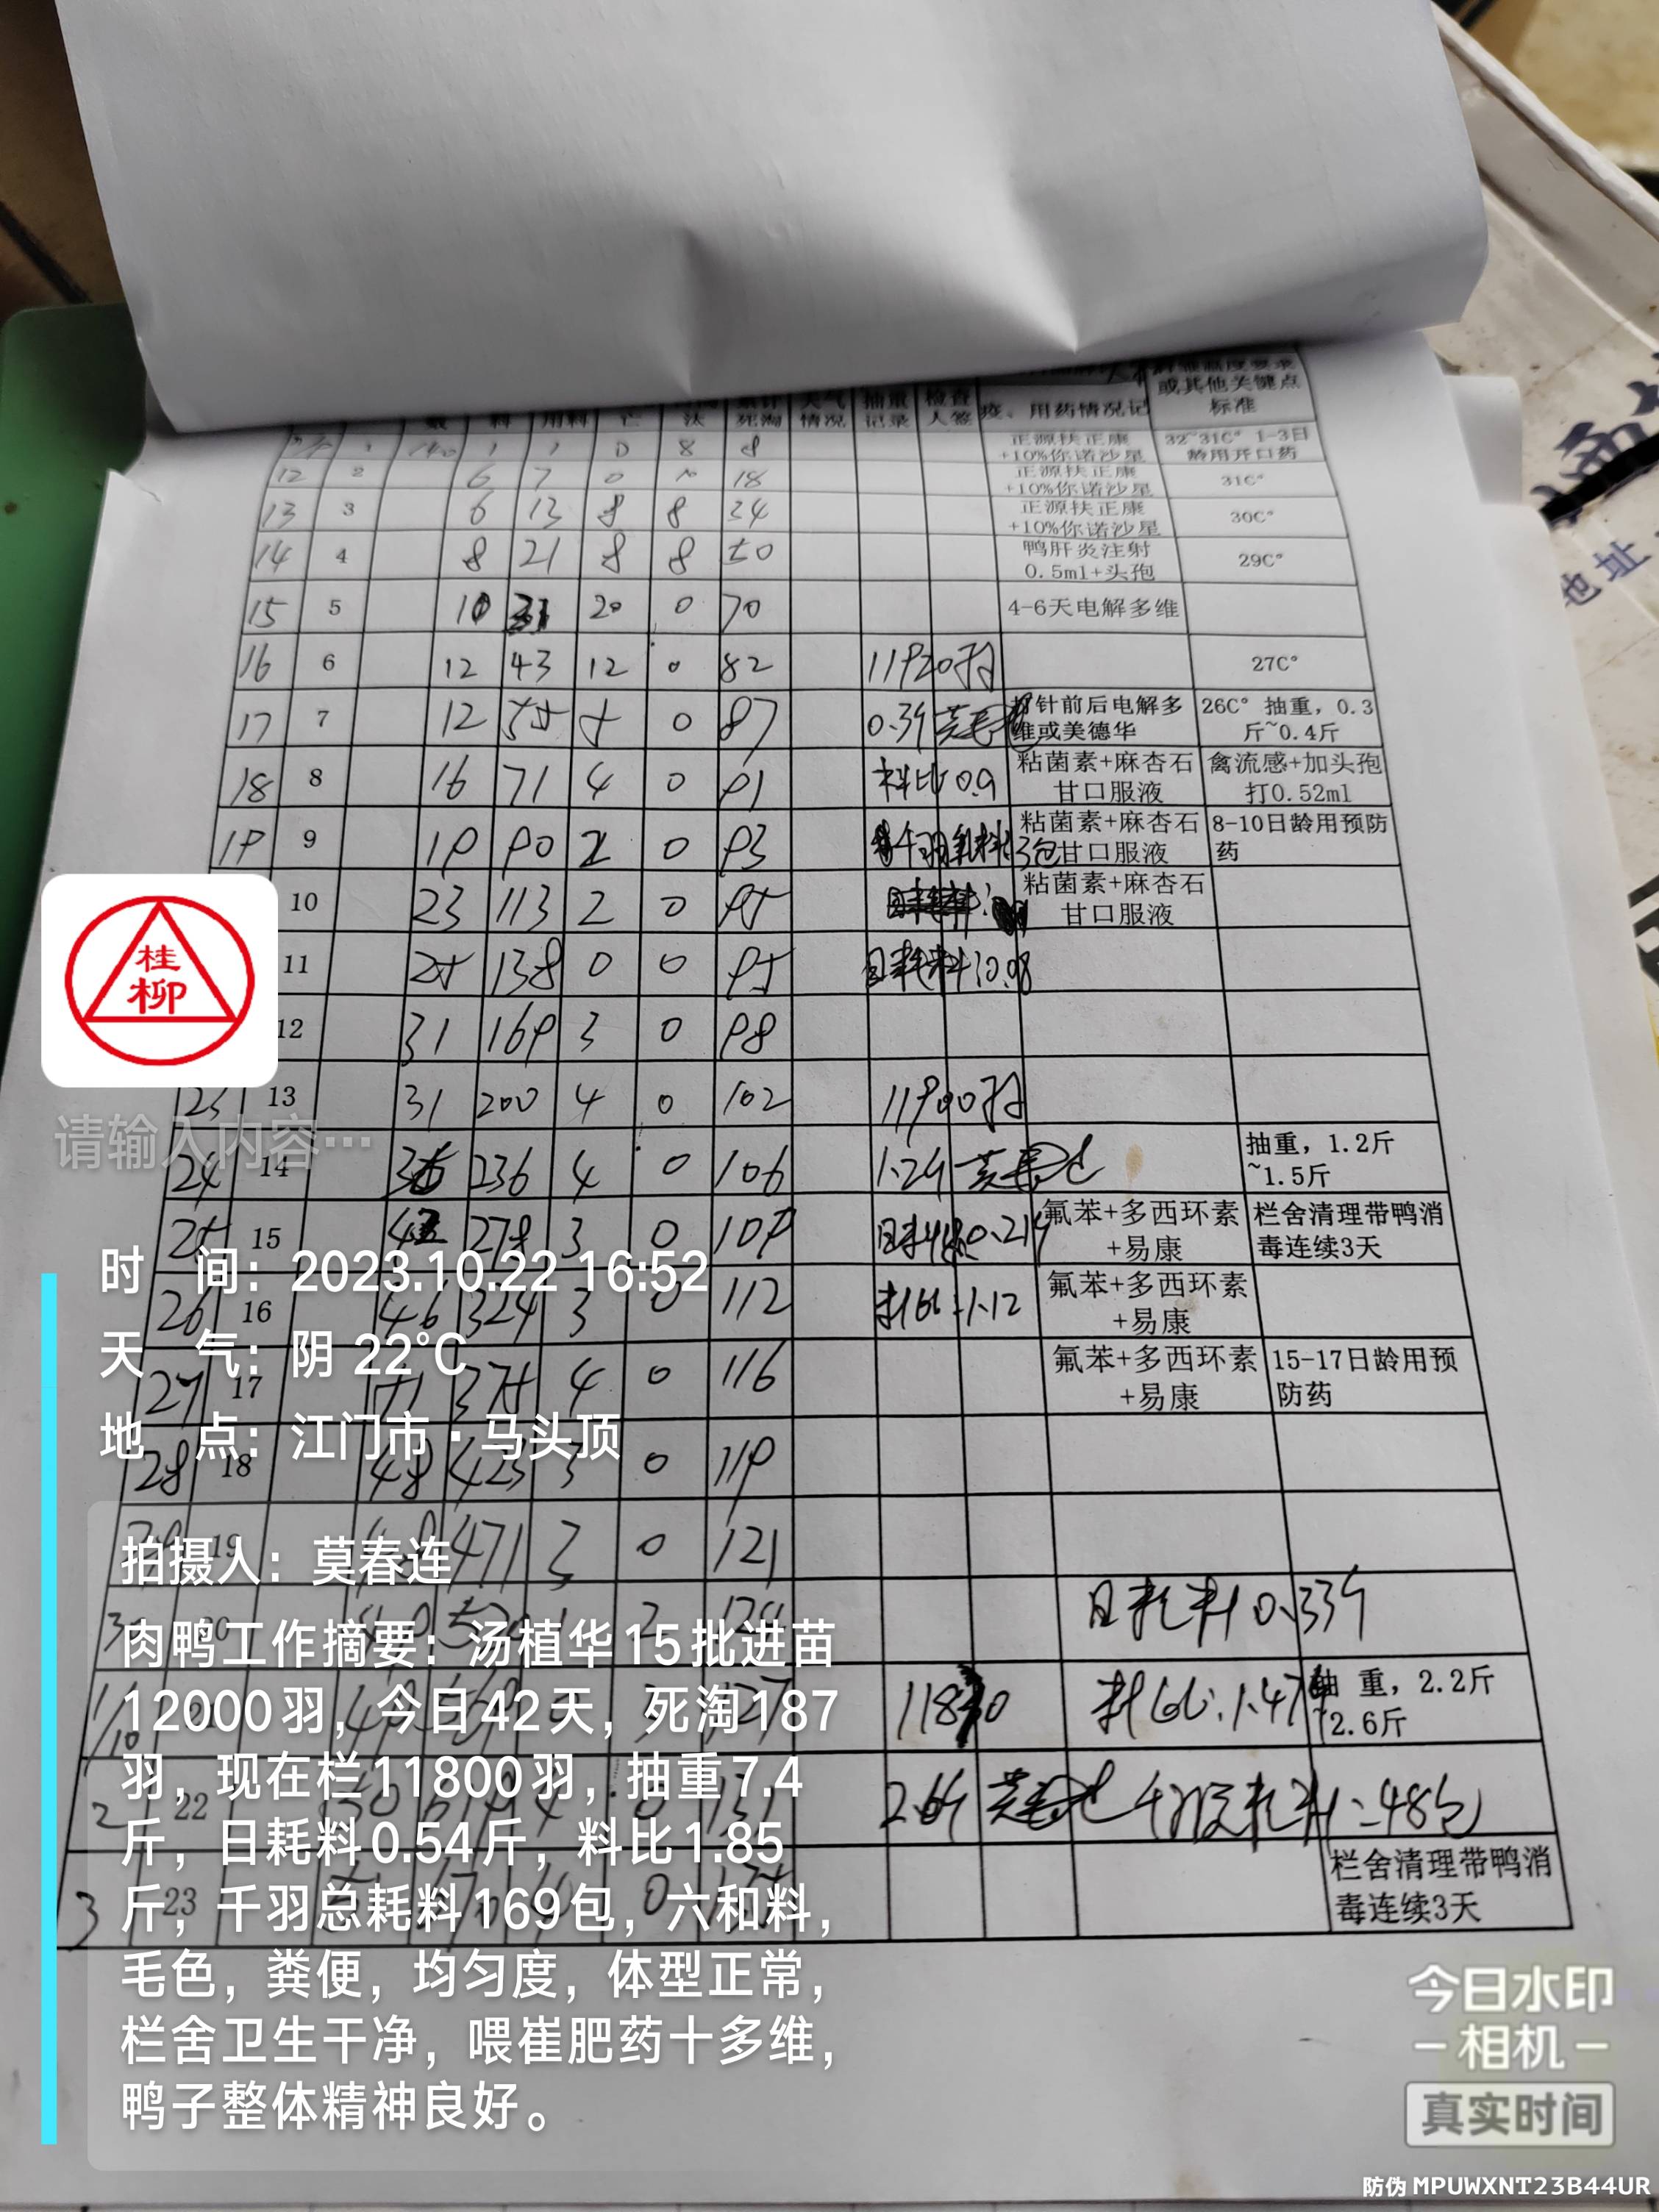 料 用料 亡 汰 死淘 情况 记录 人签 疫、用药情况记 或其他关键点
标准
1 1 1 0 8 8 正源扶正康 32~31C° 1-3日
+10%你诺沙星 龄用开口药
12 2 6 7 0 18 正源扶正康 31C°
+10%你诺沙星
13 3 6 13 8 8 34 正源扶正康 30C°
+10%你诺沙星
14 4 8 21 8 8 50 鸭肝炎注射 29C°
0.5ml+头孢
15 5 10 31 20 0 70 4-6天电解多维
16 6 12 43 12 0 82 11920羽 27C°
17 7 12 55 5 0 87 0.39 针前后电解多 26C° 抽重，0.3
维或美德华 斤~0.4斤
18 8 16 71 4 0 91 料比0.9 粘菌素+麻杏石 禽流感+加头孢
甘口服液 打0.52ml
19 9 19 90 2 0 93 粘菌素+麻杏石 8-10日龄用预防
3包 甘口服液 药
10 23 113 2 0 95 粘菌素+麻杏石
甘口服液
11 25 138 0 0 95 日耗料0.08
12 31 169 3 0 98
23 13 31 200 4 0 102 11900羽
24 14 36 236 4 0 106 抽重，1.2斤
~1.5斤
25 15 42 278 3 0 109 氟苯+多西环素 栏舍清理带鸭消
+易康 毒连续3天
26 16 46 324 3 0 112 料比:1.12 氟苯+多西环素
+易康
27 17 51 375 4 0 116 氟苯+多西环素 15-17日龄用预
+易康 防药
28 18 48 423 3 0 119
19 48 471 3 0 121
20 2 124 日耗料0.33斤
1/10 21 127 料比:1.47 抽 重，2.2斤
~2.6斤
2 22 50 4 0 131 千羽总耗料=48包
3 23 0 栏舍清理带鸭消
毒连续3天
桂
柳
请输入内容…
时 间：2023.10.22 16:52
天 气：阴 22℃
地 点：江门市·马头顶
拍摄人：莫春连
肉鸭工作摘要：汤植华15批进苗
12000羽，今日42天，死淘187
羽，现在栏11800羽，抽重7.4
斤，日耗料0.54斤，料比1.85
斤，千羽总耗料169包，六和料，
毛色，粪便，均匀度，体型正常，
栏舍卫生干净，喂崔肥药十多维，
鸭子整体精神良好。
今日水印
－相机－
真实时间
防伪 MPUWXNT23B44UR